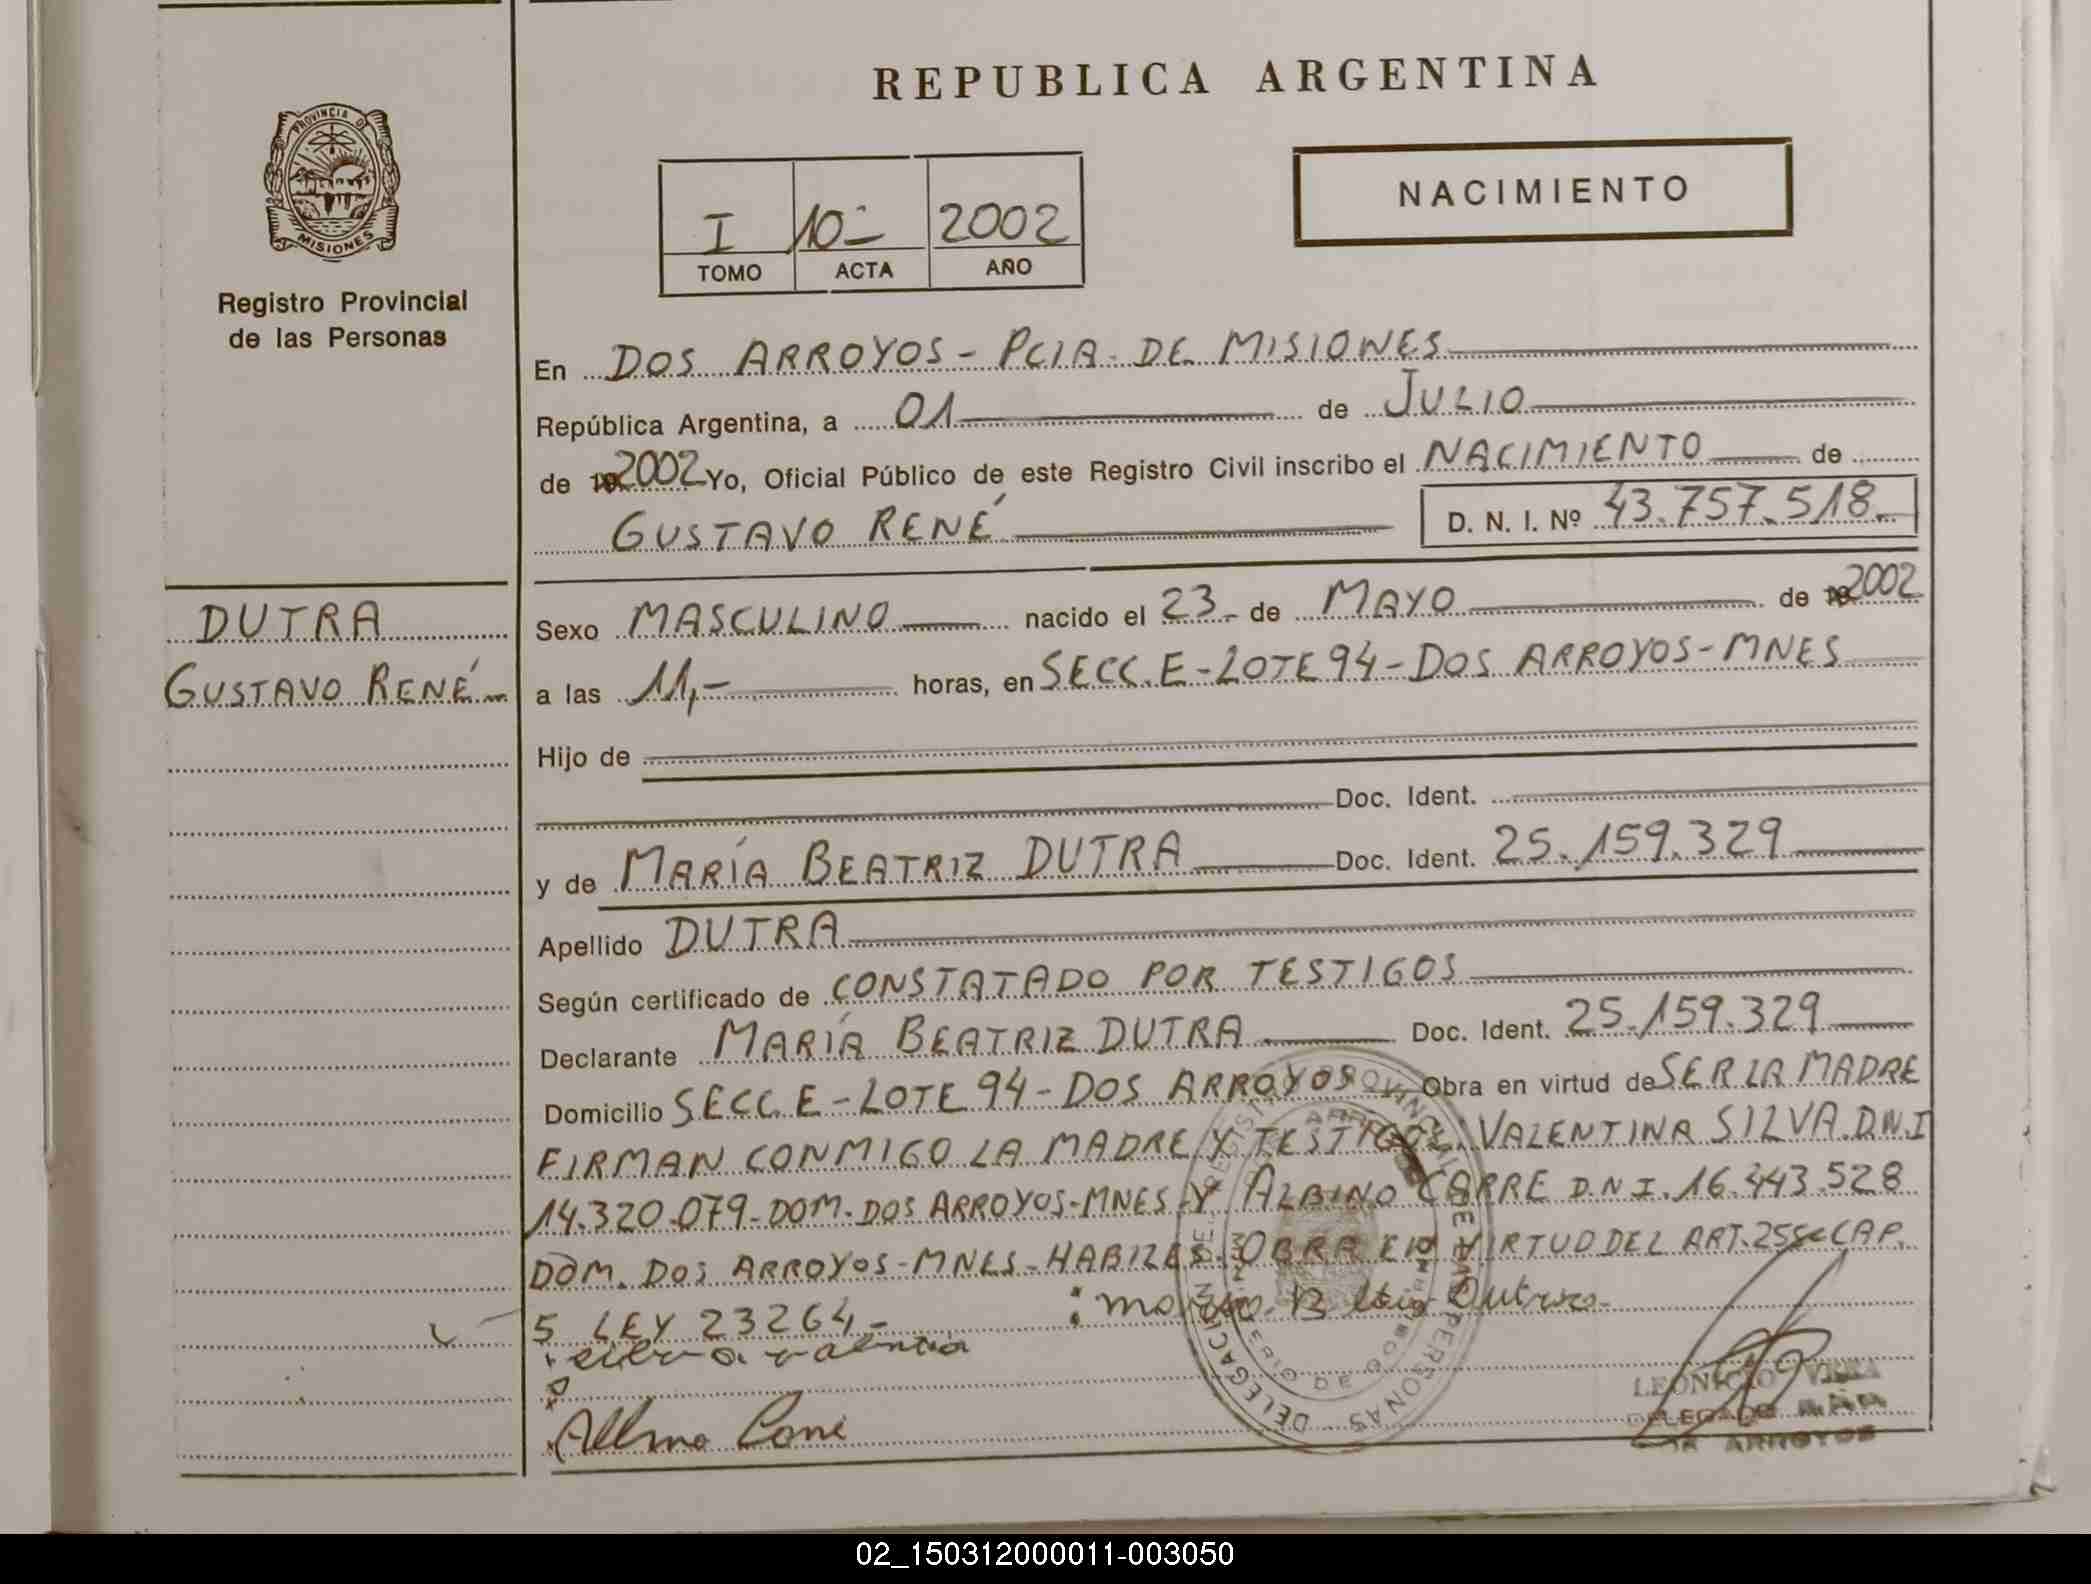 REPUBLICA ARGENTINA
PROVINCIA DE
MISIONES
Registro Provincial
de las Personas
I 10- 2002
TOMO ACTA AÑO
NACIMIENTO
En DOS ARROYOS - PCIA. DE MISIONES
República Argentina, a 01 de JULIO
de 19 2002 Yo, Oficial Público de este Registro Civil inscribo el NACIMIENTO de
GUSTAVO RENÉ D. N. I. Nº 43.757.518.
DUTRA
GUSTAVO RENÉ
Sexo MASCULINO nacido el 23- de MAYO de 19 2002
a las 11,- horas, en SECC. E - LOTE 94 - DOS ARROYOS - MNES
Hijo de
Doc. Ident.
y de MARÍA BEATRIZ DUTRA Doc. Ident. 25.159.329
Apellido DUTRA
Según certificado de CONSTATADO POR TESTIGOS
Declarante MARÍA BEATRIZ DUTRA Doc. Ident. 25.159.329
Domicilio SECC. E - LOTE 94 - DOS ARROYOS Obra en virtud de SER LA MADRE
FIRMAN CONMIGO LA MADRE Y TESTIGOS. VALENTINA SILVA. D.N.I
14.320.079 - DOM. DOS ARROYOS - MNES - Y ALBINO CARRE D.N.I. 16.443.528
DOM. DOS ARROYOS - MNES - HABILES. OBRA EN VIRTUD DEL ART. 255 CAP.
5 LEY 23264 -
Dutra
LEONICIO
DELEGADO
ARROYOS
02_150312000011-003050